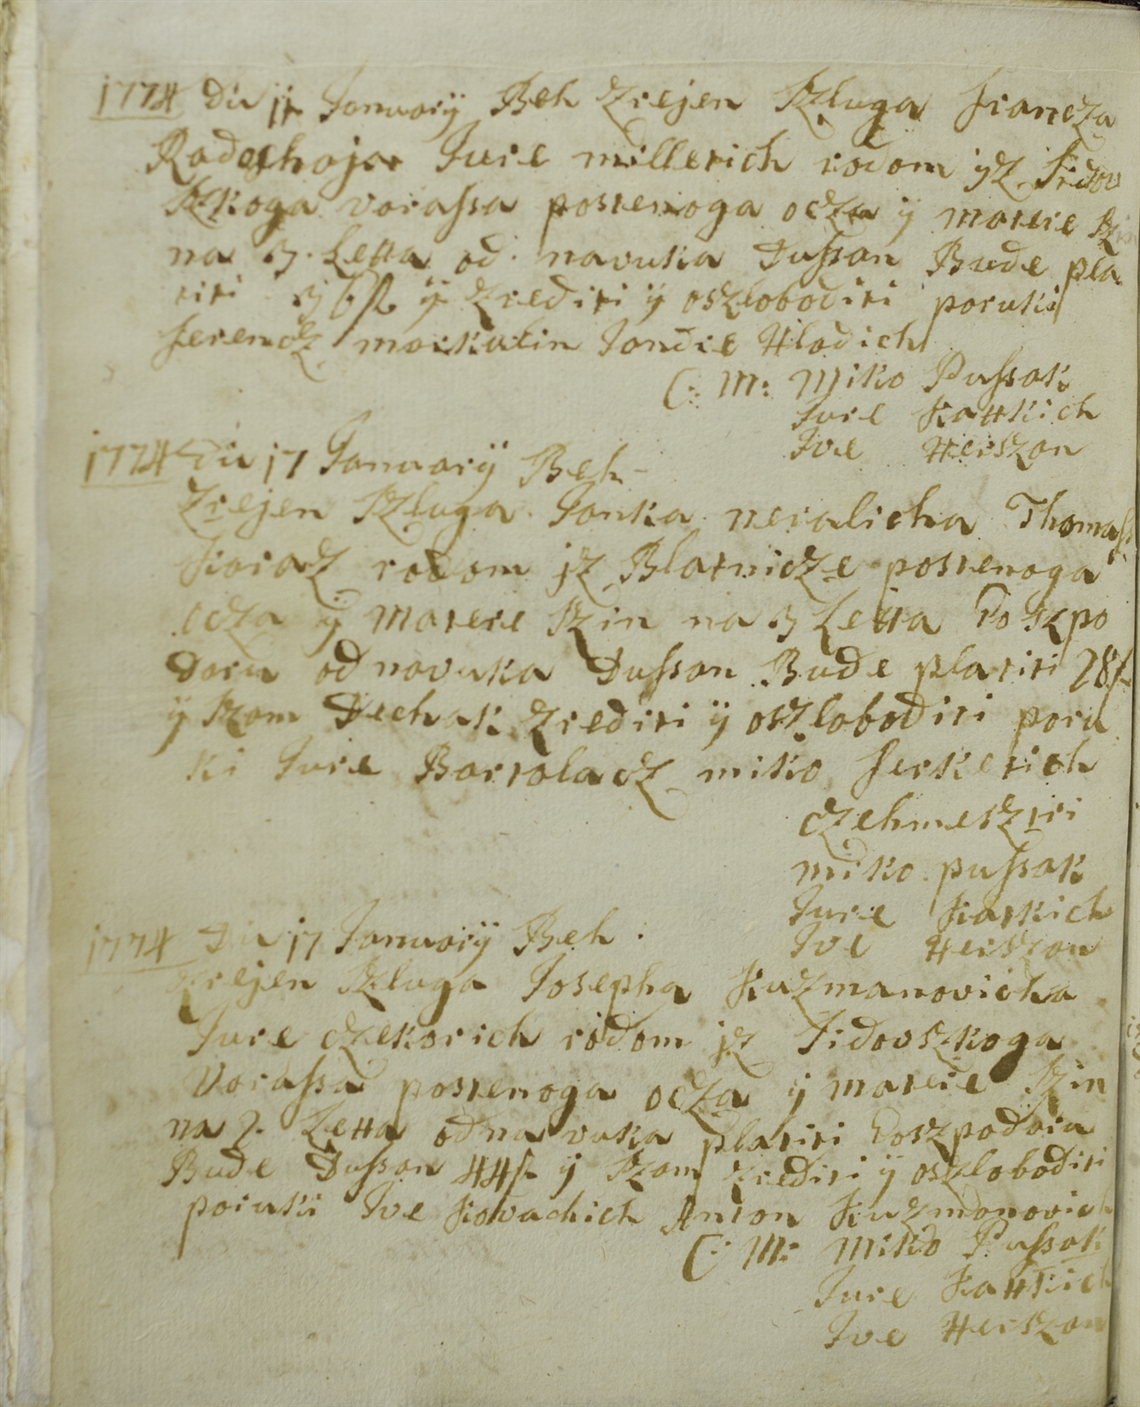 1774 Die 17 January Beh Zrejen Szluga Francza
Radechaja Jure millerich rodom jz Sidov
Szkoga vorassa postenoga ocza ÿ matere Szin
na 3. Letta od navuka Dussan Bude pla
titi 36f ÿ Zrediti ÿ oszloboditi poruki
Ferencz markulin Jandre Hladich
C: M: Miko Pussak
Jure Kattkich
Ive Herszan
1774 Die 17 January Beh
Zrejen Szluga Janka neralicha Thomass
Koracz rodom jz Blatnicze postenoga
ocza ÿ matere Szin na 3 Letta Goszpo
daru od navuka Dussan Bude platiti 28f
ÿ Szam Dechak Zrediti ÿ oszloboditi poru
ki Jure Bartolacz miko Ferketich
czehmesztri
miko pussak
Jure Katkich
Ive Herszan
1774 Die 17 January Beh
Zrejen Szluga Josepha Kuzmanovicha
Jure czekorich rodom jz Sidovszkoga
Vorassa postenoga ocza ÿ matere Szin
na 2. Letta od navuka platiti Goszpodaru
Bude Dussan 44f ÿ Szam Zrediti ÿ oszloboditi
poruki Ive Kovachich Anton Kuzmanovich
C: M: Miko Pussak
Jure Kattkich
Ive Herszan